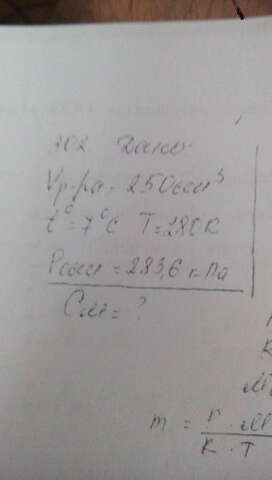 302. Дано:
Vр-ра - 250 см³
t° = 7°C T = 280 K
Pосм = 283,6 кПа
См = ?
m =
R · T